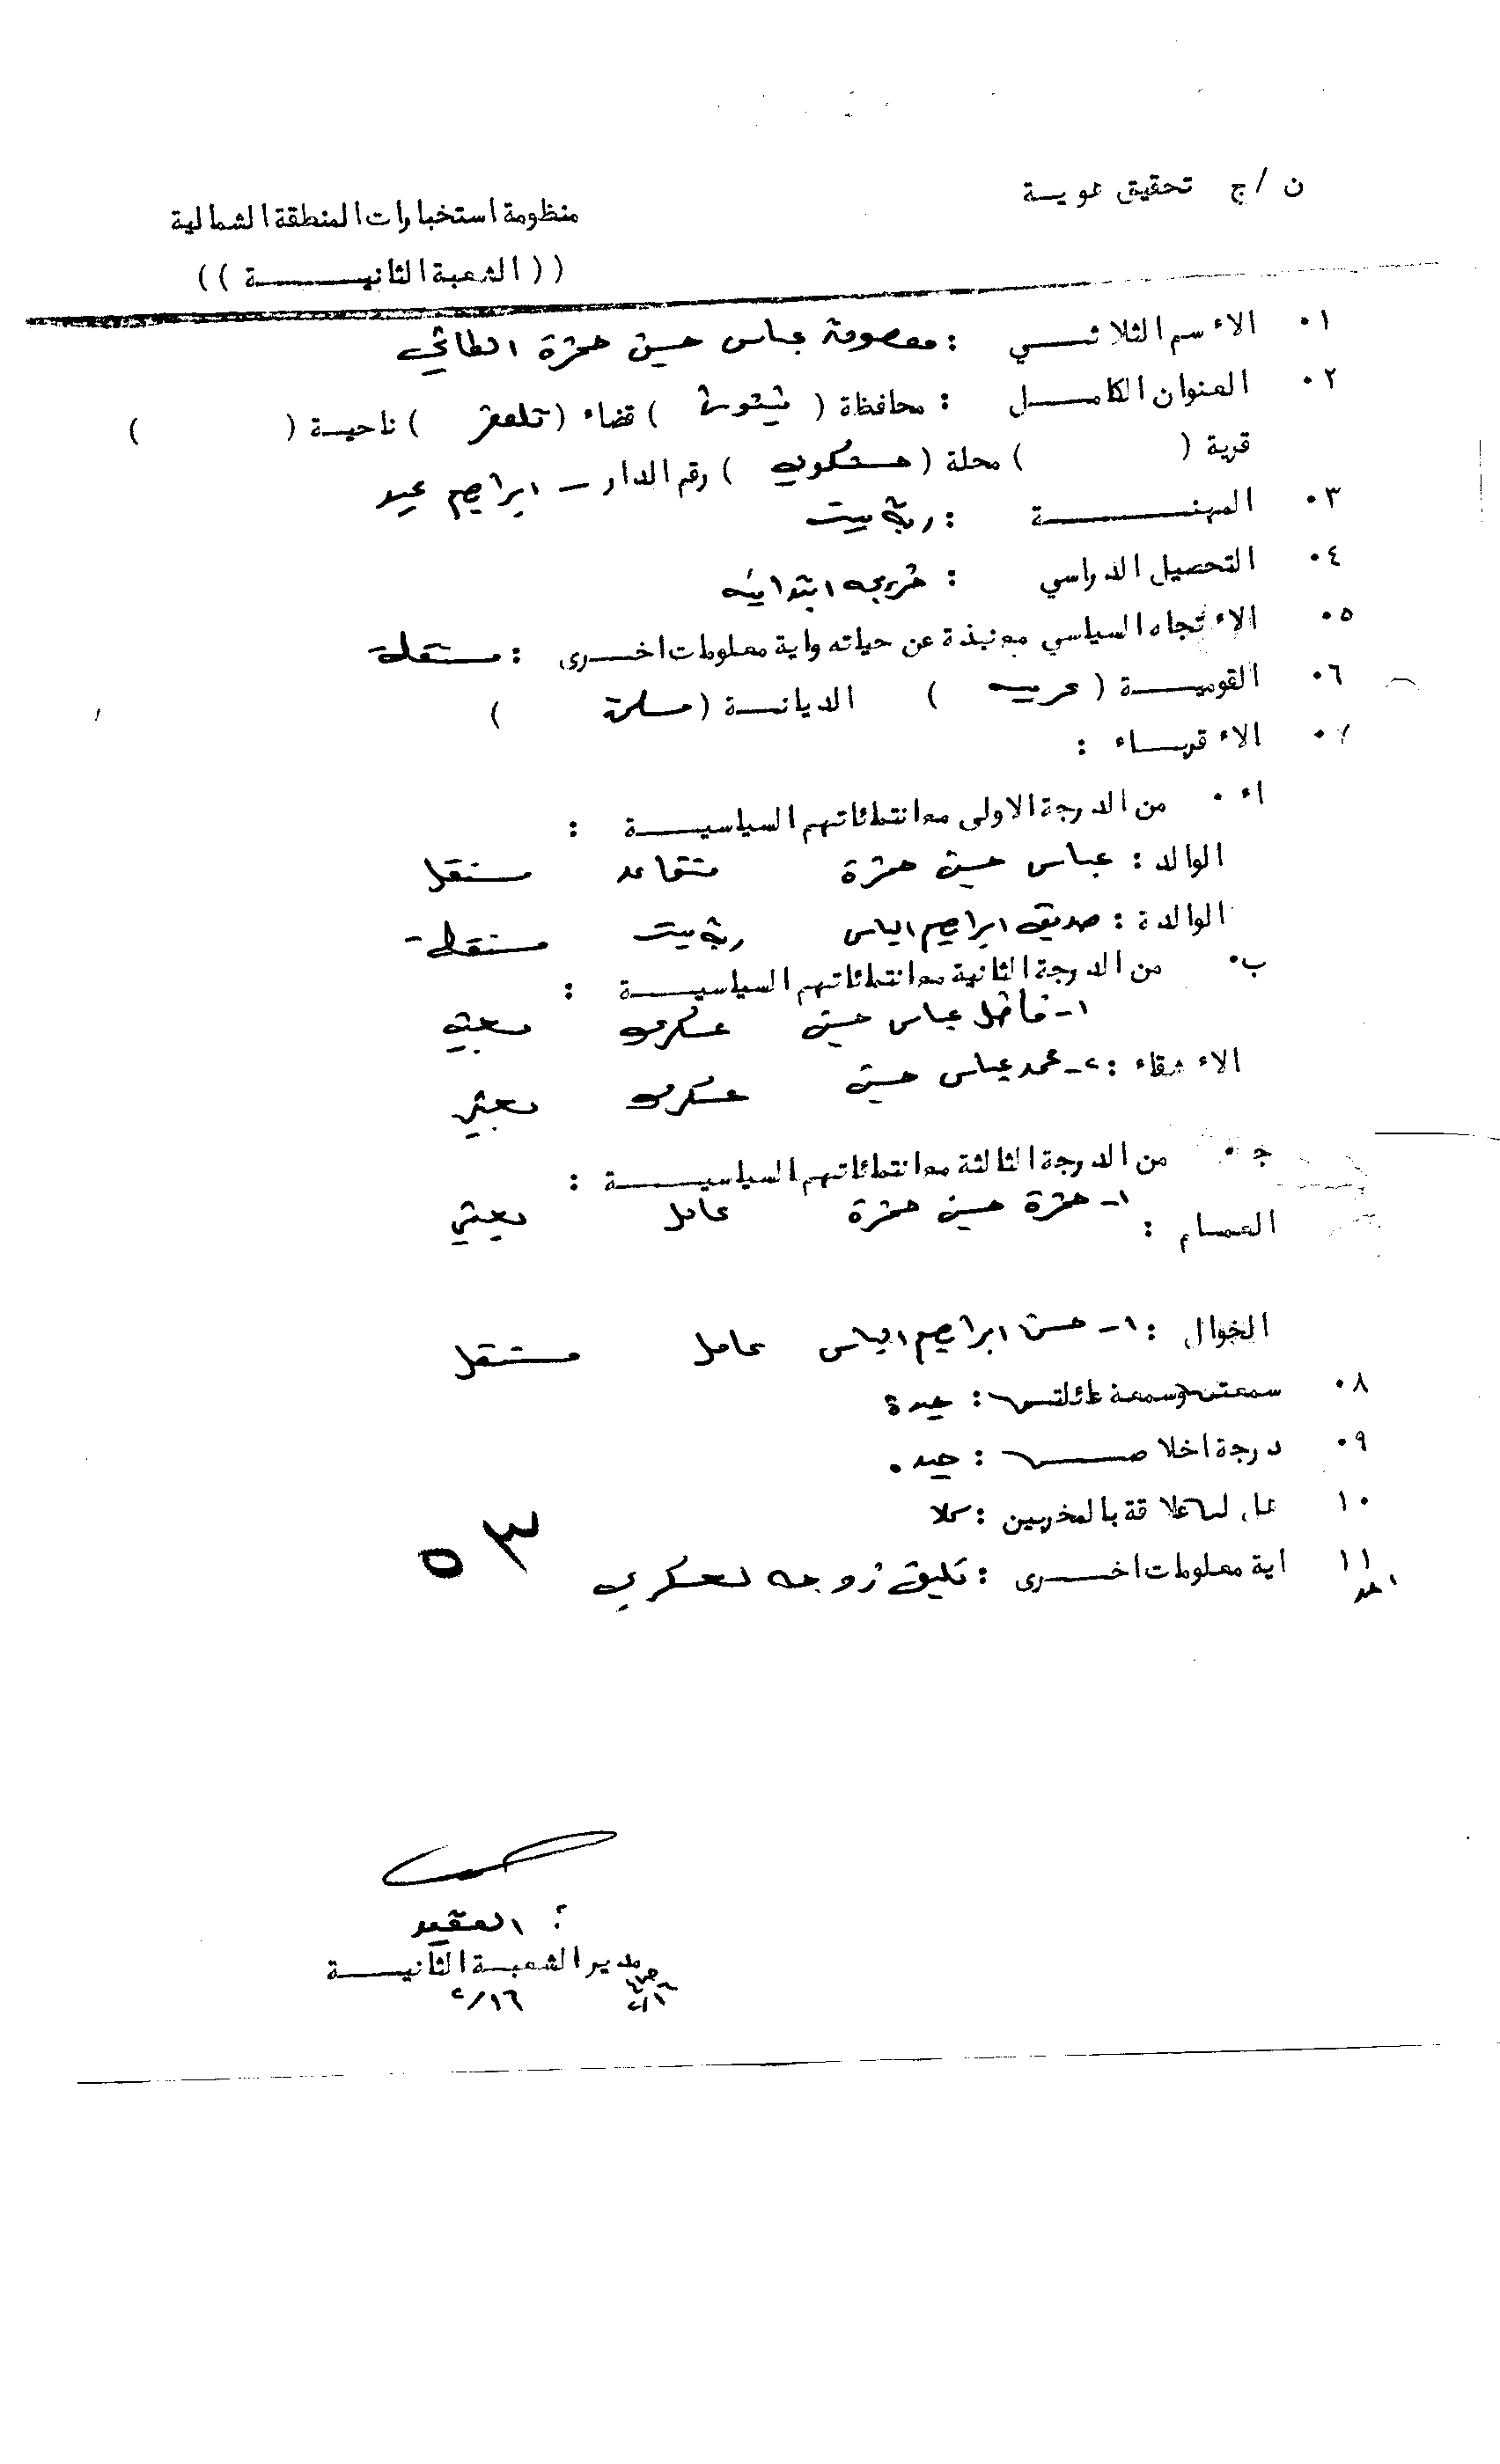 ن / ج تحقيق هوية
منظومة استخبارات المنطقة الشمالية
(( الشعبة الثانيـــــة ))
٠١ الاءسم الثلاثـــي : معصومة عباس حسين حمزة الطائي
٠٢ العنوان الكامـــل : محافظة ( نينوى ) قضاء ( تلعفر ) ناحيـة ( )
قرية ( ) محلة ( حسنكوي ) رقم الدار - ابراهيم عيد
٠٣ المهنـــــــة : ربة بيت
٠٤ التحصيل الدراسي : خريجه ابتدائيه
٠٥ الاءتجاه السياسي مع نبذة عن حياته واية معلومات اخــرى : مستقلة
٠٦ القوميـــة ( عربيه ) الديانــة ( مسلمة )
٠٧ الاءقربــاء :
اء٠ من الدرجة الاولى مع انتمائاتهم السياسيـــة :
الوالد : عباس حسين حمزة متقاعد مستقل
الوالدة : صديقة ابراهيم الياس ربة بيت مستقلة
ب٠ من الدرجة الثانية مع انتمائاتهم السياسيـــة :
١- فاضل عباس حسين عسكري بعثي
الاءشقاء : ٢- محمد عباس حسين عسكري بعثي
ج٠ من الدرجة الثالثة مع انتمائاتهم السياسيـــة :
١- حمزة حسين حمزة عامل بعثي
العمــام :
الخوال : ١- حسن ابراهيم الياس عامل مستقل
٠٨ سمعتها وسمعة عائلتها : جيدة
٠٩ درجة اخلاصـــها : جيد .
١٠٠ هل لها علاقة بالمخربين : كلا
١١ اية معلومات اخـــرى : تليق زوجه لعسكري
٥٣
احمد
العقيد
مدير الشعبــة الثانيـــة
٢/١٦
٢/١٦